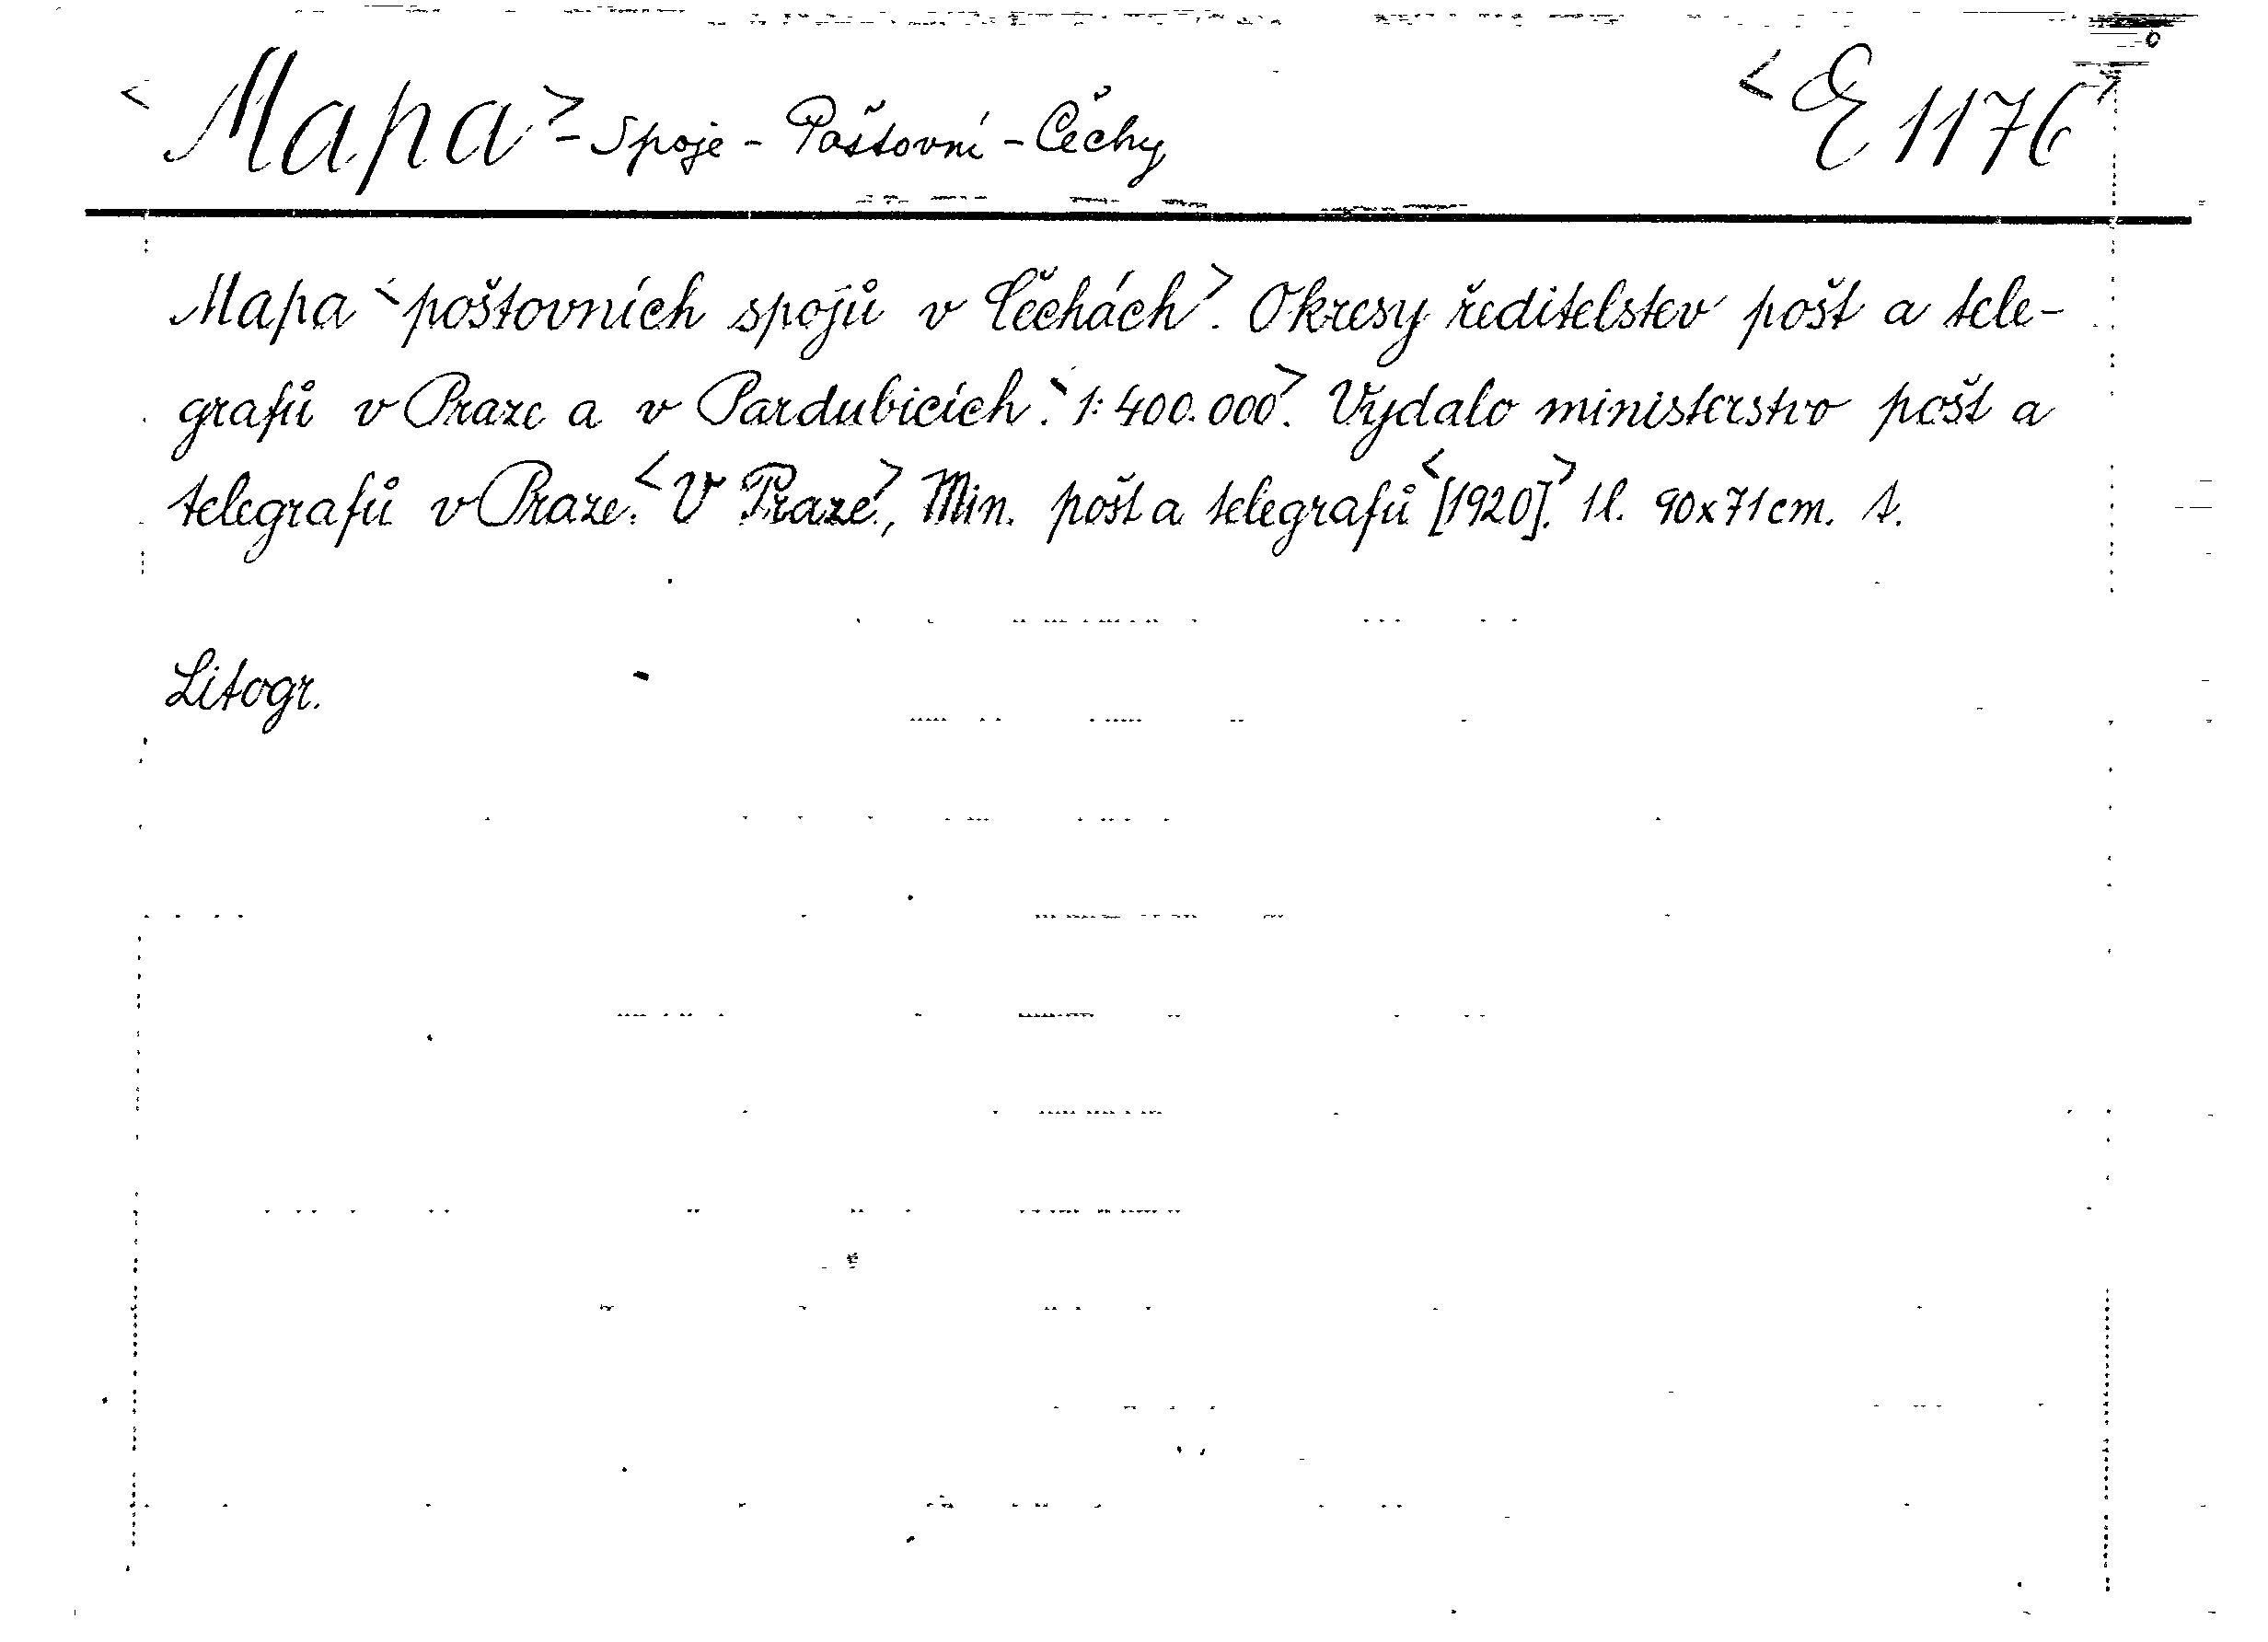 <Mapa> - Spoje - Poštovní - Čechy <E 1176>
Mapa <poštovních spojů v Čechách>. Okresy ředitelstev pošt a tele-
grafů v Praze a v Pardubicích. <1:400.000>. Vydalo ministerstvo pošt a
telegrafů v Praze. <V Praze>, Min. pošt a telegrafů <[1920]>. 1l. 90x71cm. t.
Litogr.